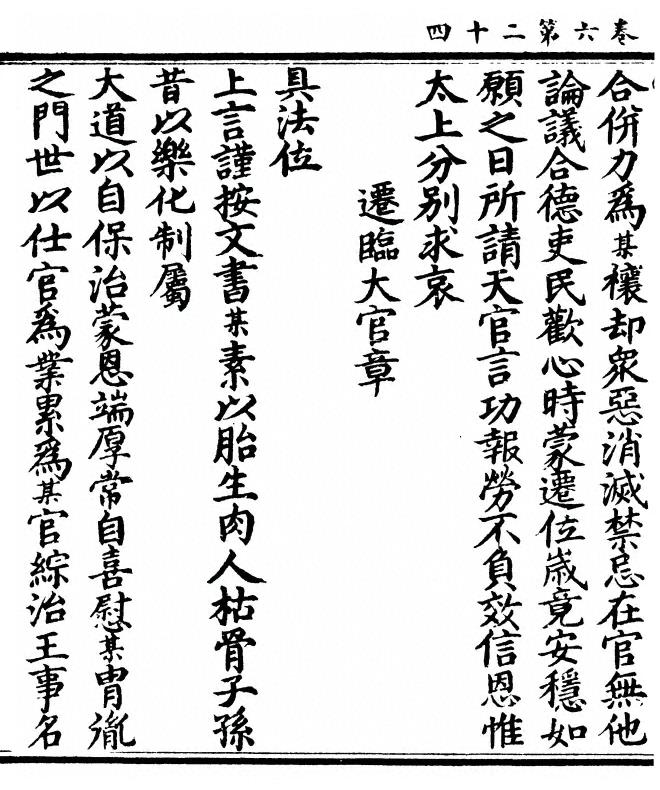 卷六第二十四
合併力爲某禳却衆惡消滅禁忌在官無他
論議合德吏民歡心時蒙遷位歲竟安穩如
願之日所請天官言功報勞不負效信恩惟
太上分別求哀
遷臨大官章
具法位
上言謹按文書某素以胎生肉人枯骨子孫
昔以樂化制屬
大道以自保治蒙恩端厚常自喜慰某胄胤
之門世以仕官爲業累爲某官綜治王事名